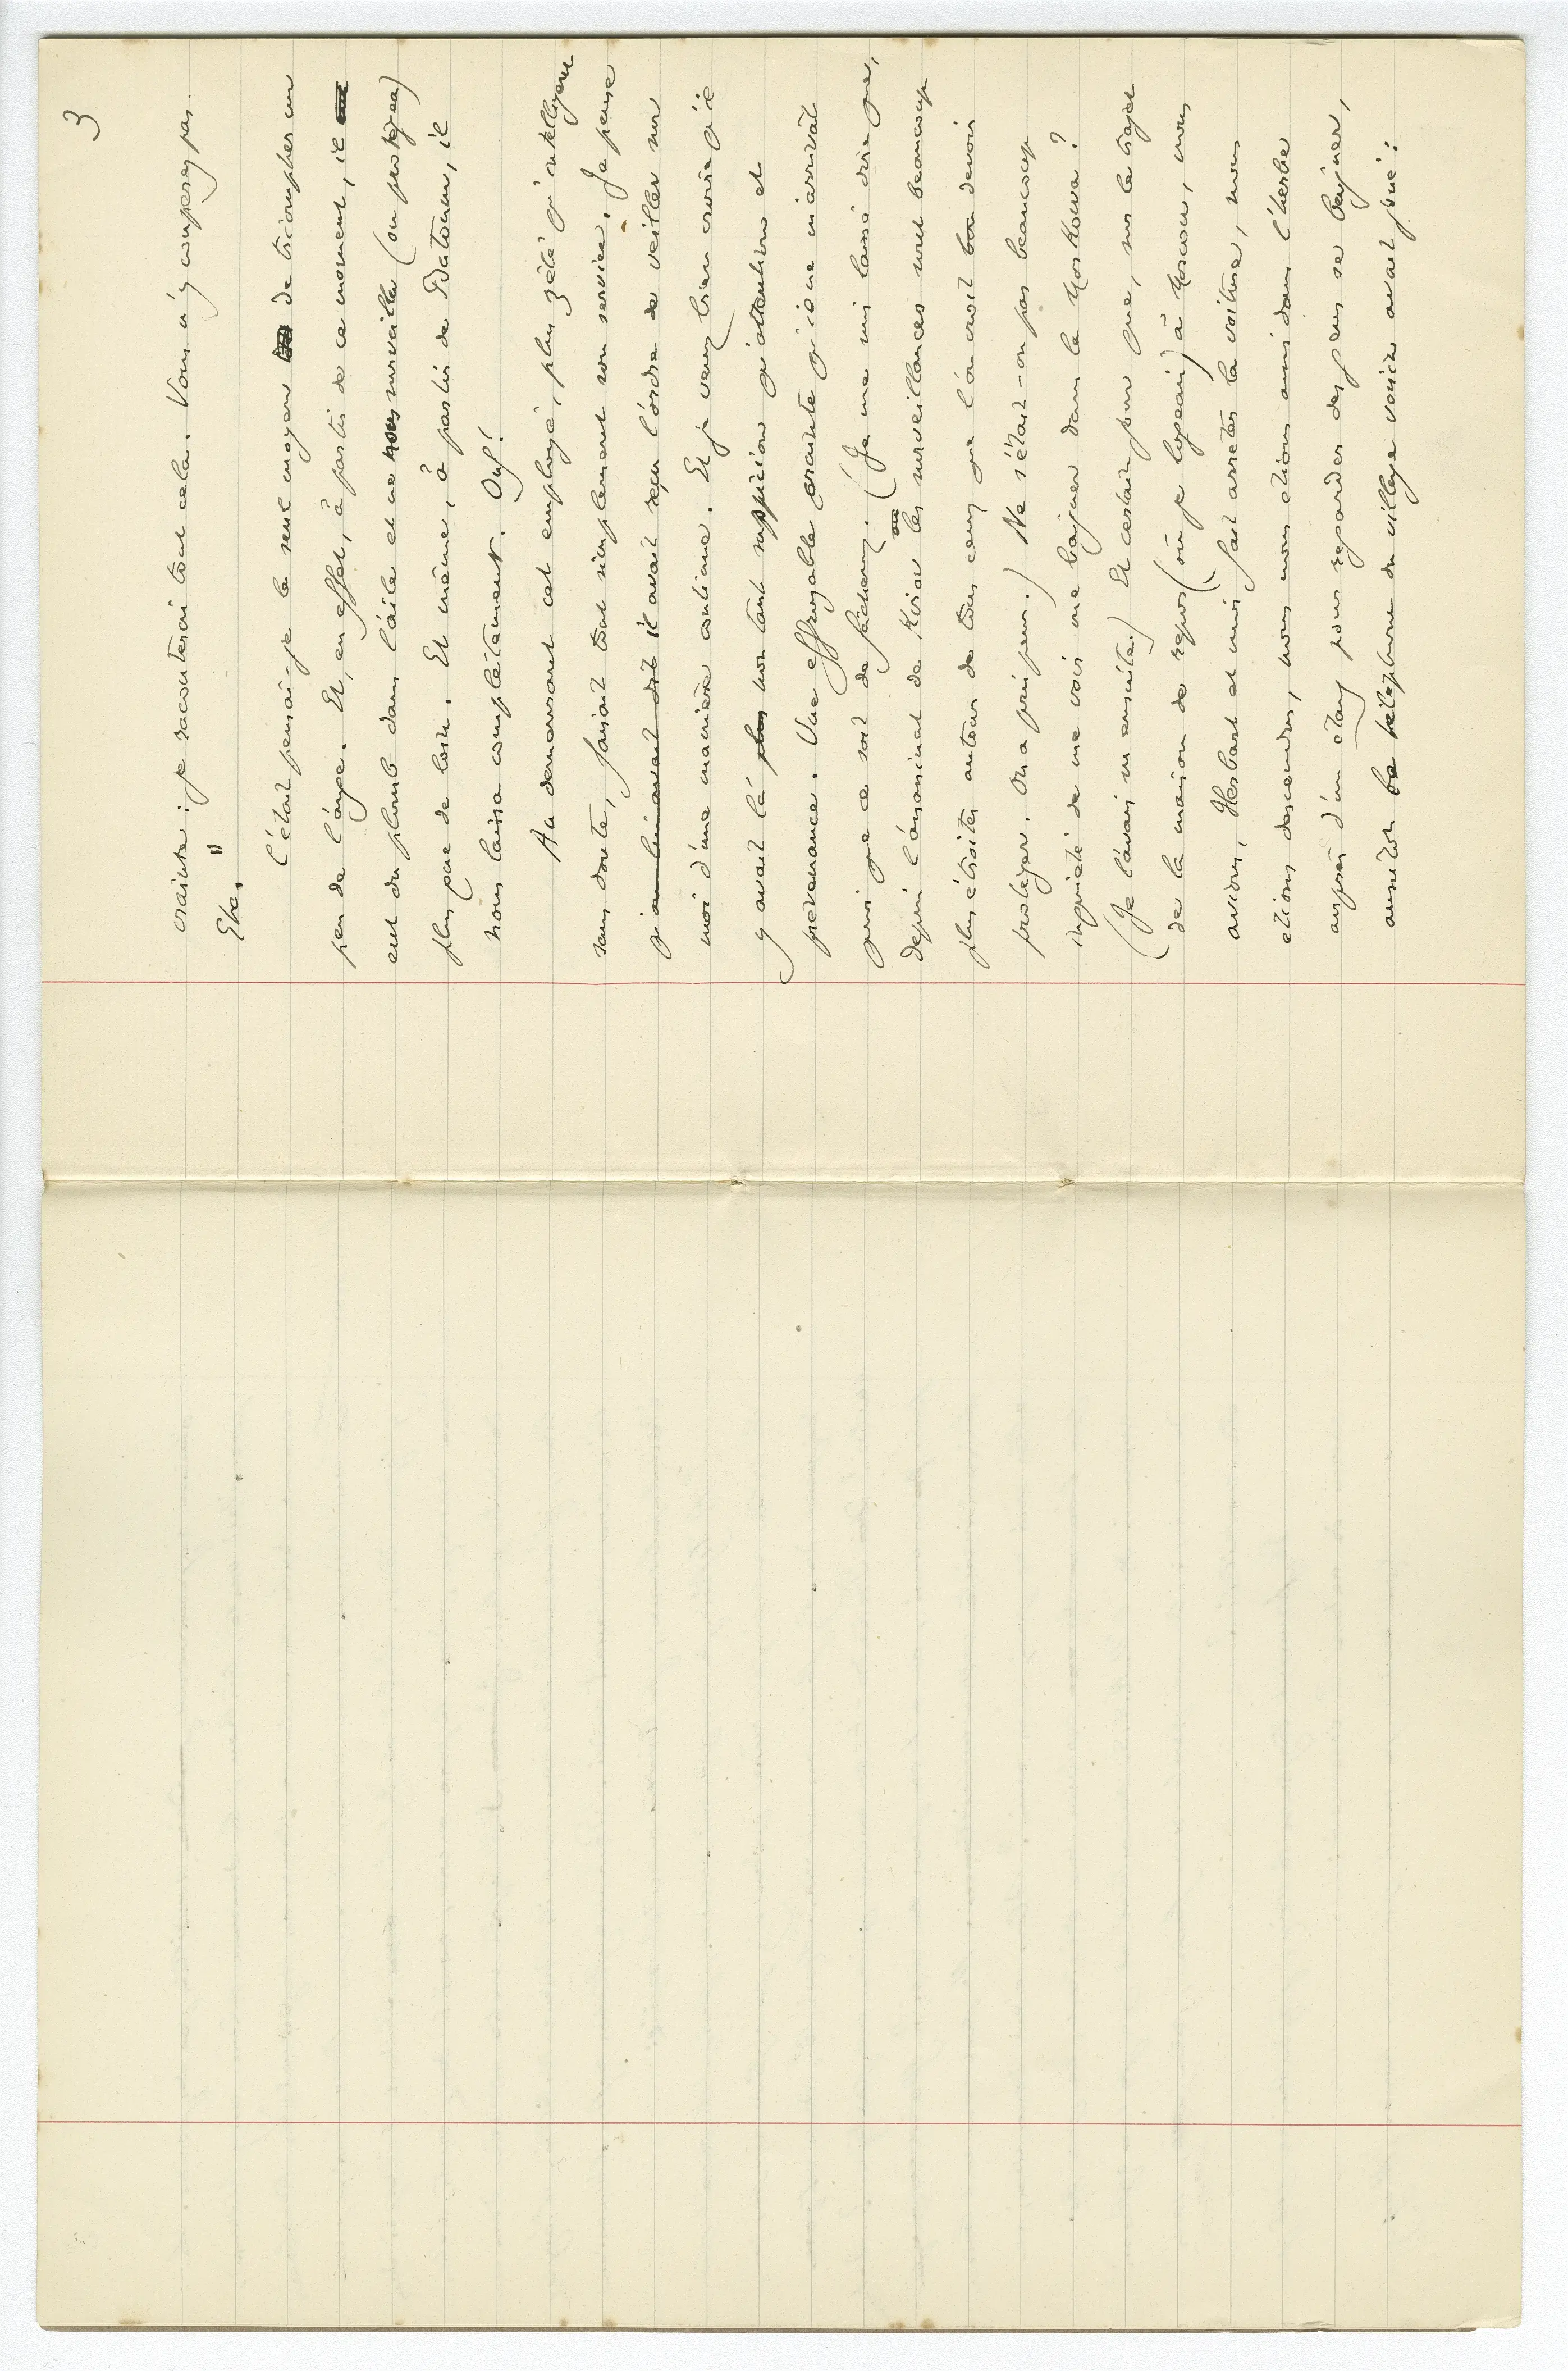 3
crainte ; je raconterai tout cela. Vous n'y couperez pas.
Etc. "
C'était pensai-je le seul moyen de triompher un
peu de l'ange. Et, en effet, à partir de ce moment, il
eut du plomb dans l'aile et ne nous surveilla (ou protégea)
plus que de loin. Et même, à partir de Batoum, il
nous laissa complètement. Ouf!
Au demeurant cet employé, plus zélé qu'intelligent
sans doute, faisait tout simplement son service. Je pense
qu'on lui avait dit il avait reçu l'ordre de veiller sur
moi d'une manière continue. Et je veux bien croire qu'il
y avait là plus non tant suspicion qu'attention et
prévenance. Une effroyable crainte qu'il ne m'arrivât
quoi que ce soit de fâcheux. (Je me suis laissé dire que,
depuis l'assassinat de Kirov les surveillances sont beaucoup
plus étroites autour de tous ceux que l'on croit devoir
protéger. On a pris peur.) Ne s'était-on pas beaucoup
inquiété de me voir me baigner dans la Moskowa?
(Je l'avais su ensuite.) Et certain jour que, sur le trajet
de la maison de repos (où je logeais) à Moscou, nous
avions, Herbart et moi, fait arrêter la voiture, nous
étions descendus, nous nous étions assis dans l'herbe
auprès d'un étang pour regarder des gens se baigner,
aussitôt le téléphone du village voisin avait joué :